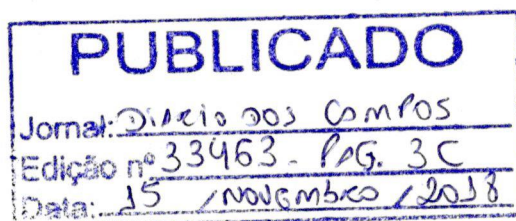 PUBLICADO
Jornal: Diário dos Campos
Edição nº 33463 - PAG. 3C
Data: 15 / NOVEMBRO / 2018